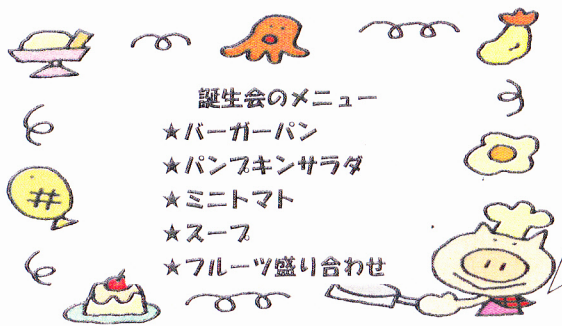 誕生会のメニュー
★バーガーパン
★パンプキンサラダ
★ミニトマト
★スープ
★フルーツ盛り合わせ